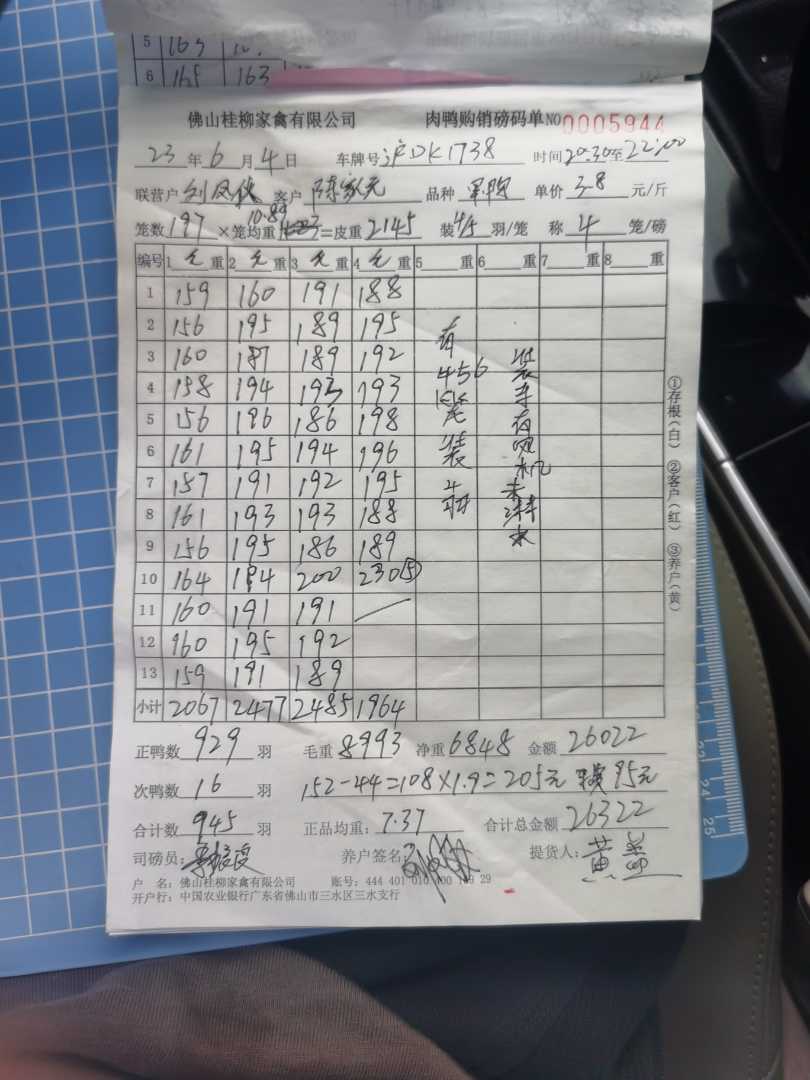 5 163
6 165 163
佛山桂柳家禽有限公司 肉鸭购销磅码单NO 0005944
23 年 6 月 4 日 车牌号 沪DK1738 时间 20:30 至 22:00
联营户 客户 陈家元 品种 单价 3-8 元/斤
10.89
笼数 197 ×笼均重 =皮重 2145 装 4/5 羽/笼 称 4 笼/磅
编号 1 毛 重 2 毛 重 3 毛 重 4 毛 重 5 重 6 重 7 重 8 重
1 159 160 191 188
2 156 195 189 195
3 160 187 189 192
4 158 194 193 193
5 156 186 186 198
6 161 195 194 196
7 157 191 192 195
8 161 193 193 188
9 156 195 186 189
10 164 194 200 230⑤
11 160 191 191 /
12 160 195 192
13 159 191 189
小计 2067 2477 2485 1964
有
456
装
装
机
水
①存根(白) ②客户(红) ③养户(黄)
正鸭数 929 羽 毛重 8993 净重 6848 金额 26022
次鸭数 16 羽 152-44=108×1.9=205元 95元
合计数 945 羽 正品均重: 7.37 合计总金额 26322
司磅员: 养户签名: 提货人: 黄
户 名: 佛山桂柳家禽有限公司 账号: 444 401 010 400 149 29
开户行: 中国农业银行广东省佛山市三水区三水支行